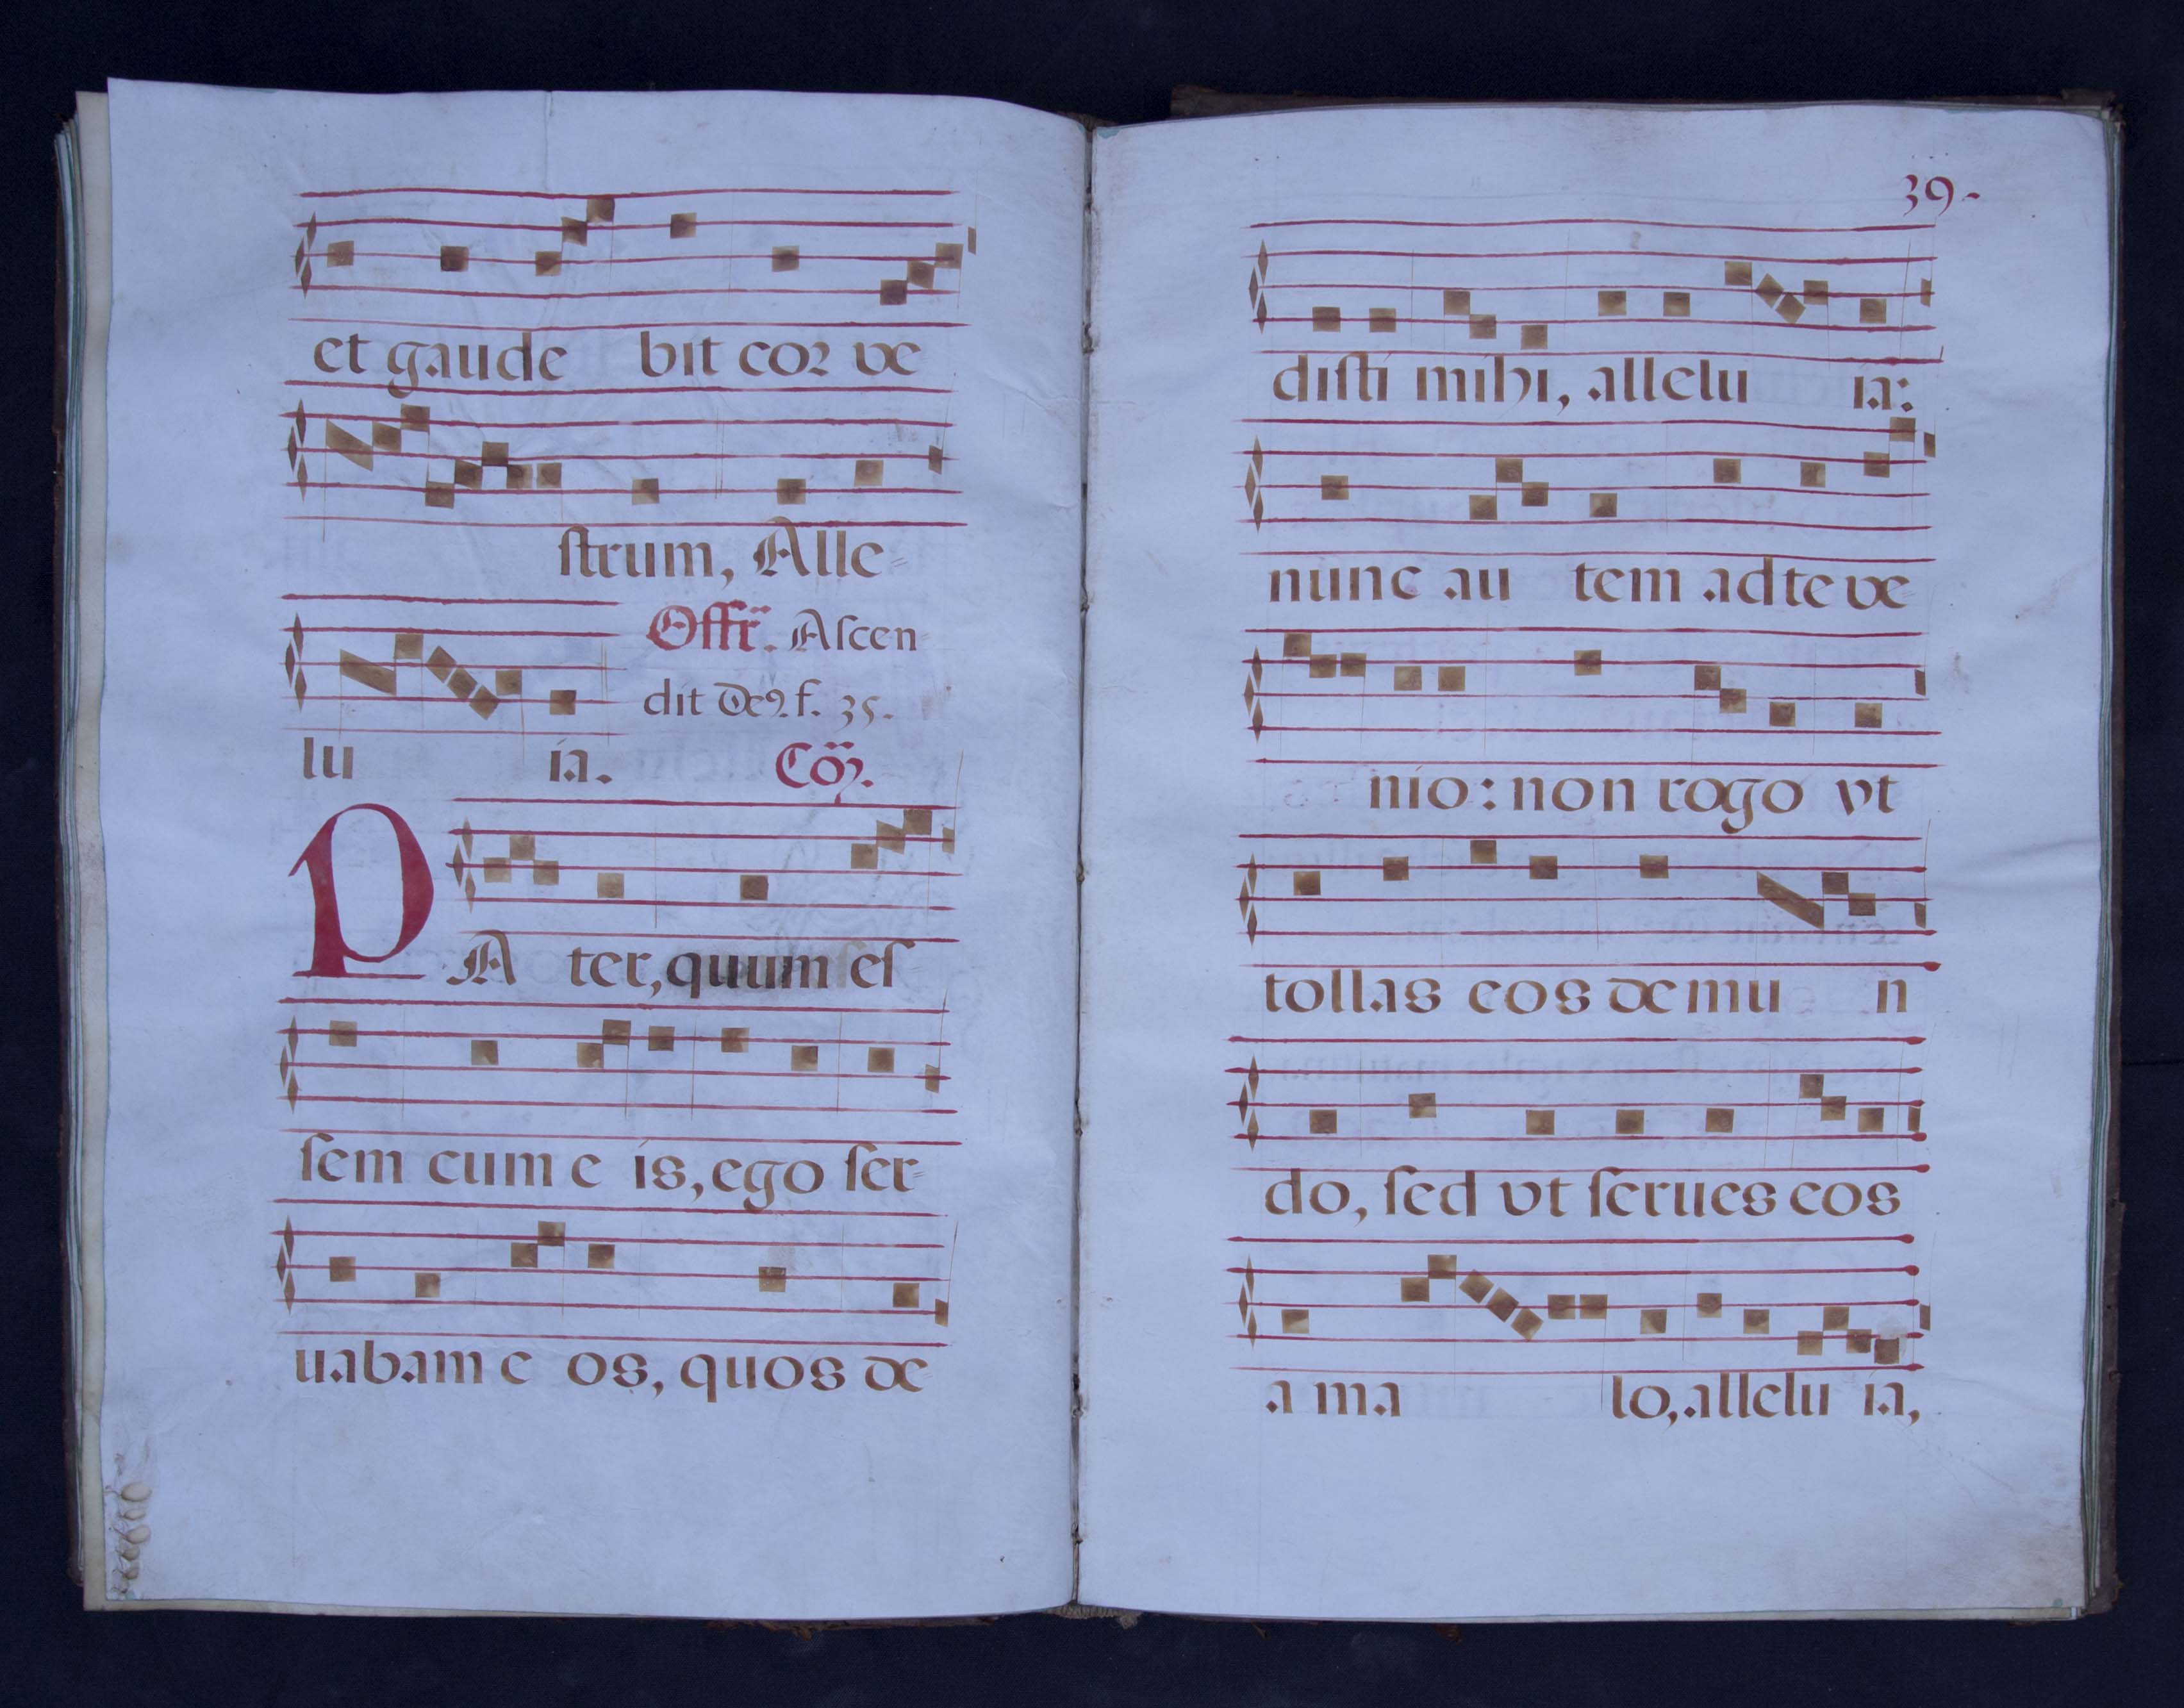 et gaude bit cor ve
ſtrum, Alle=
Offr̃. Aſcen=
dit De9. f. 35.
lu ia.
Cõ.
PAter, quum eſ
ſem cum e is, ego ſer=
uabam e os, quos de
39.
diſti mihi, allelu ia:
nunc au tem ad te ve
nio: non rogo vt
tollas eos de mu n
do, ſed vt ſerues eos
a ma lo, allelu ia,